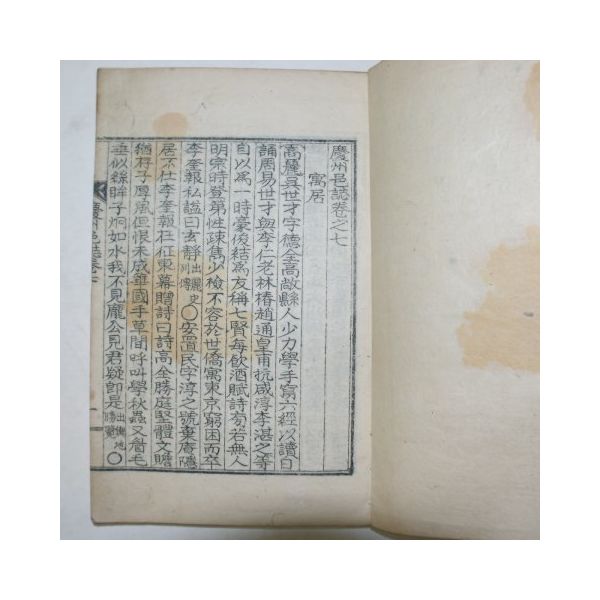 慶州邑誌卷之七
寓居
高麗吳世才字德全高敞縣人少力學手寫六經以讀日
誦周易世才與李仁老林椿趙通皇甫抗咸淳李湛之等
自以爲一時豪俊結爲友稱七賢每飮酒賦詩旁若無人
明宗時登第性疎雋少檢不容於世僑寓東京窮困而卒
李奎報私諡曰玄靜出麗史列傳〇安置民字淳之號棄庵隱
居不仕李奎報在征東幕贈詩曰詩高全勝庭堅體文贍
猶存子厚風但恨未成華國手草間呼叫學秋蟲又眉毛
垂似絲眸子炯如水我不見龐公見君疑卽是出輿地勝覽〇
慶州邑誌卷七